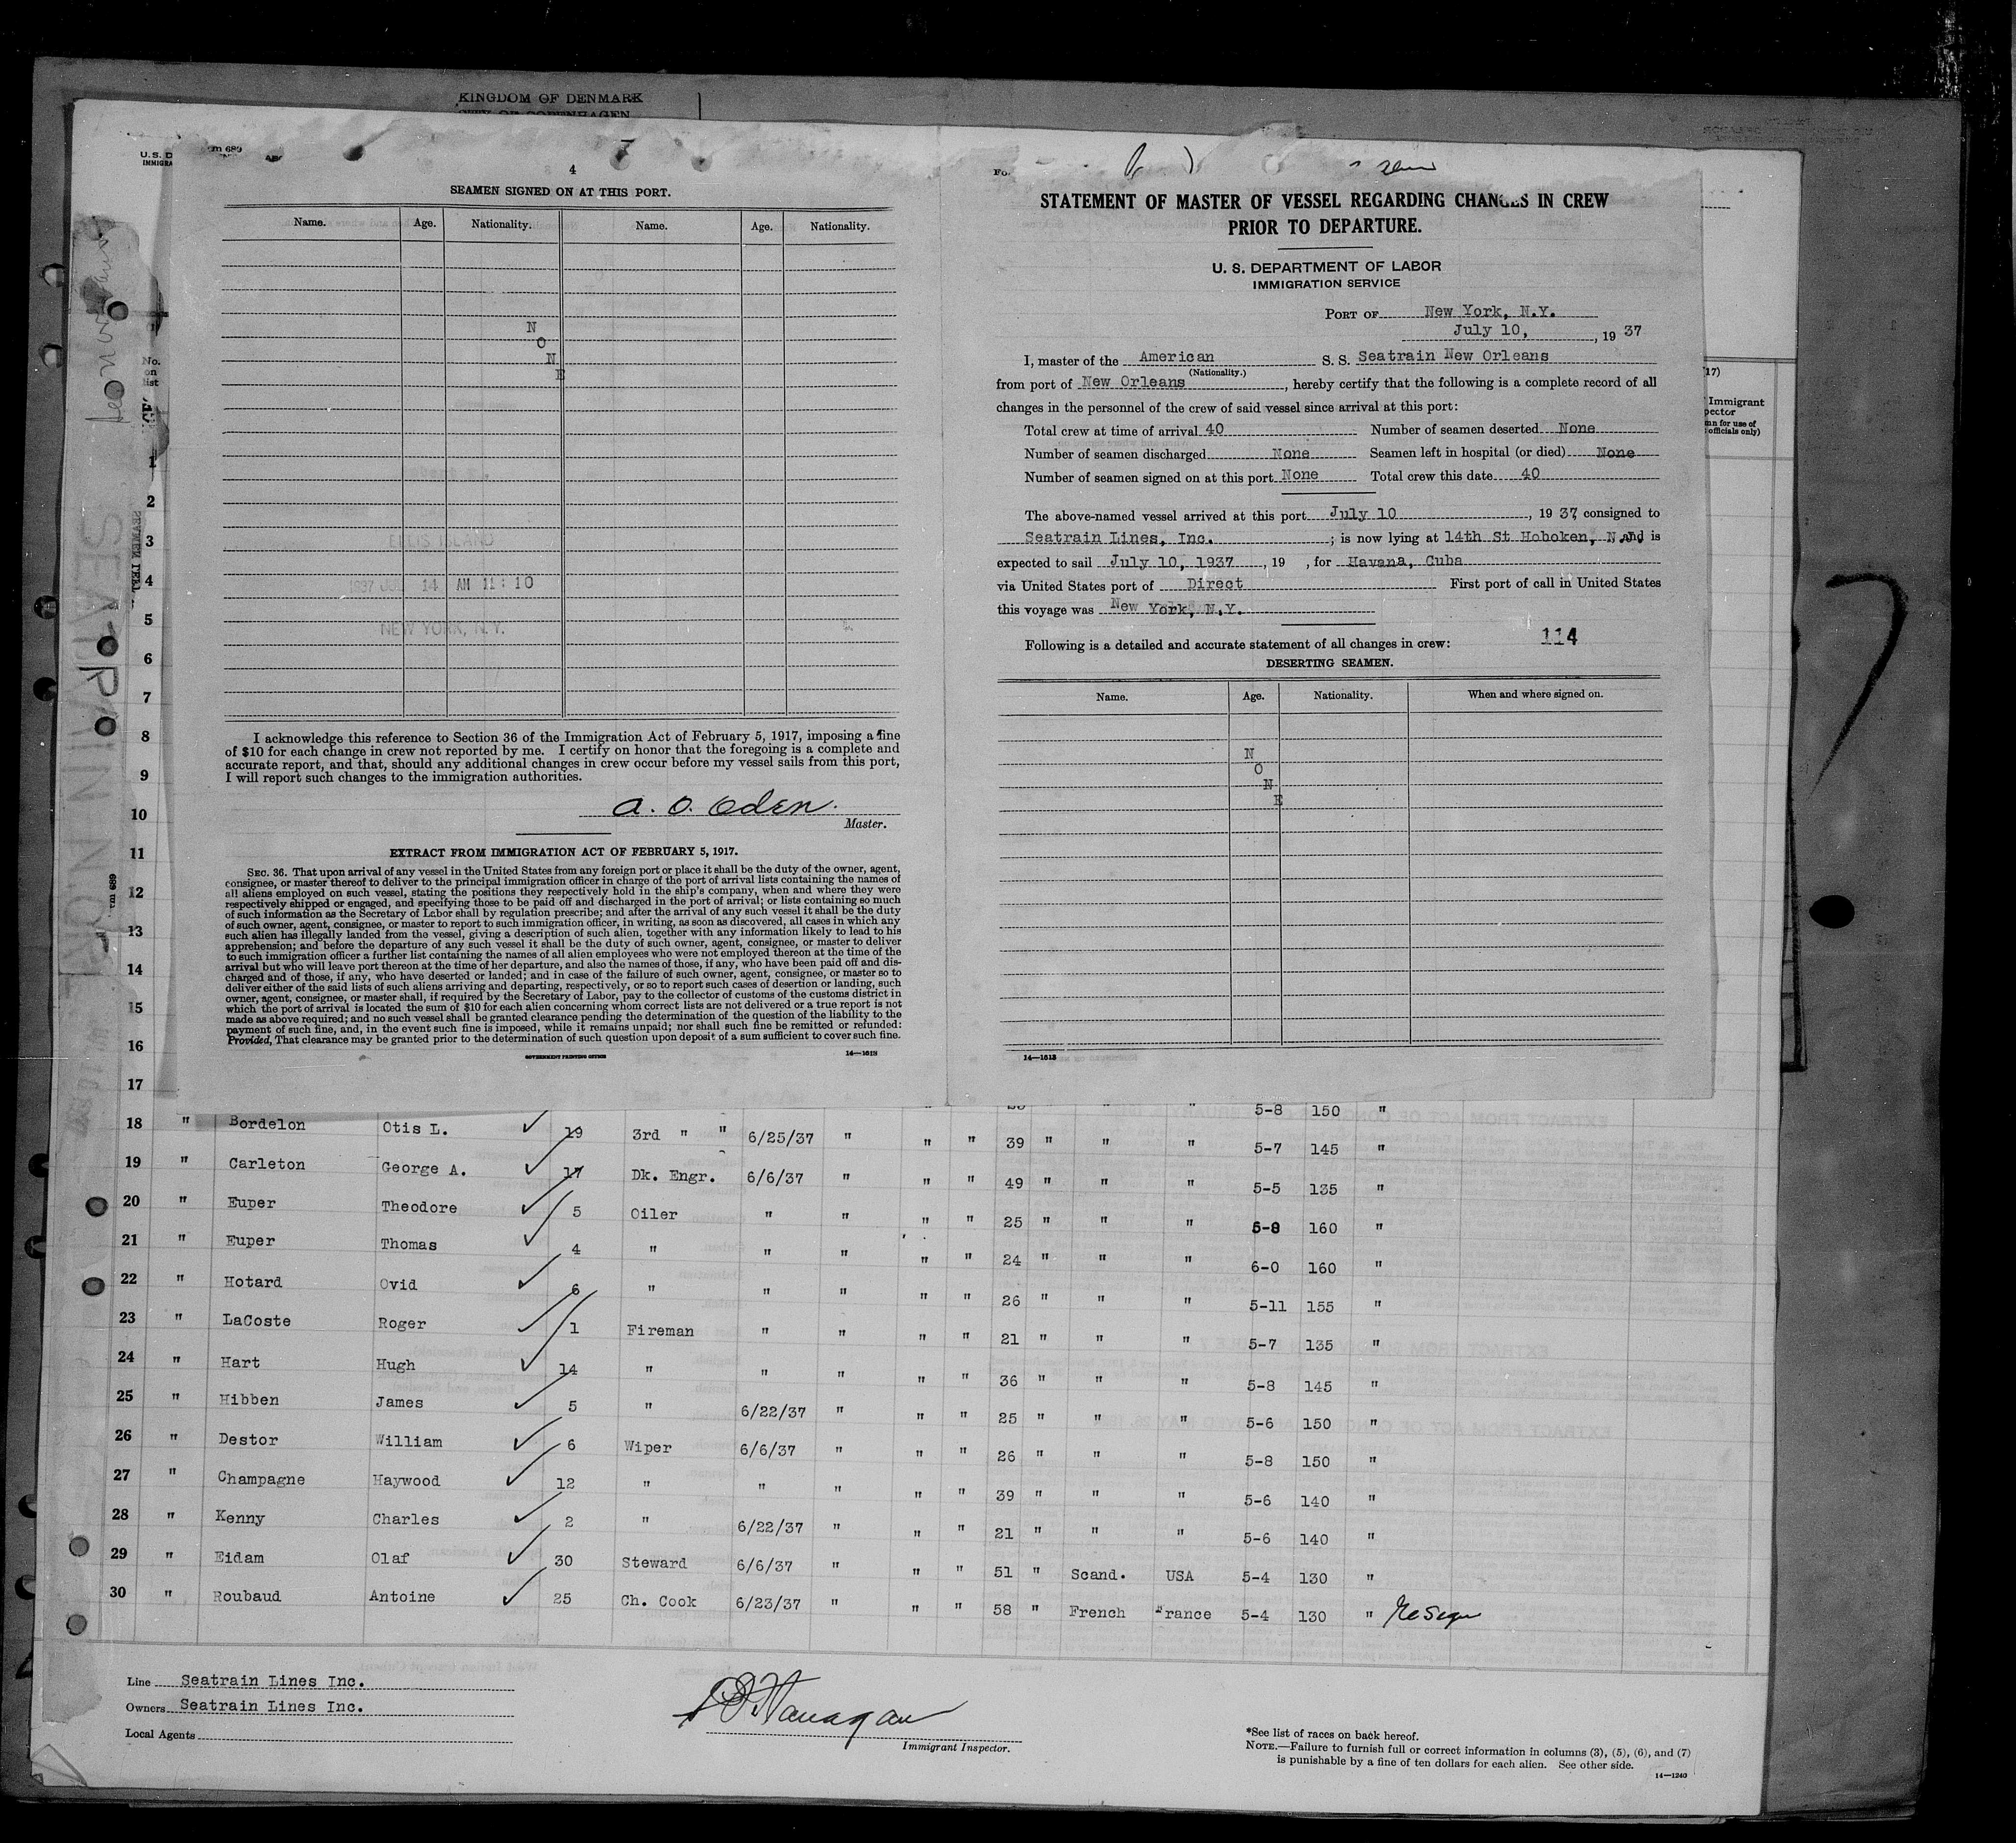 KINGDOM OF DENMARK
CITY OF COPENHAGEN
4
SEAMEN SIGNED ON AT THIS PORT.
Name. Age. Nationality. Name. Age. Nationality.
N
O
N
E
ELLIS ISLAND
14 AM 11:10
NEW YORK, N.Y.
I acknowledge this reference to Section 36 of the Immigration Act of February 5, 1917, imposing a fine
of $10 for each change in crew not reported by me. I certify on honor that the foregoing is a complete and
accurate report, and that, should any additional changes in crew occur before my vessel sails from this port,
I will report such changes to the immigration authorities.
A. O. Oden.
Master.
EXTRACT FROM IMMIGRATION ACT OF FEBRUARY 5, 1917.
SEC. 36. That upon arrival of any vessel in the United States from any foreign port or place it shall be the duty of the owner, agent,
consignee, or master thereof to deliver to the principal immigration officer in charge of the port of arrival lists containing the names of
all aliens employed on such vessel, stating the positions they respectively hold in the ship's company, when and where they were
respectively shipped or engaged, and specifying those to be paid off and discharged in the port of arrival; or lists containing so much
of such information as the Secretary of Labor shall by regulation prescribe; and after the arrival of any such vessel it shall be the duty
of such owner, agent, consignee, or master to report to such immigration officer, in writing, as soon as discovered, all cases in which any
such alien has illegally landed from the vessel, giving a description of such alien, together with any information likely to lead to his
apprehension; and before the departure of any such vessel it shall be the duty of such owner, agent, consignee, or master to deliver
to such immigration officer a further list containing the names of all alien employees who were not employed thereon at the time of the
arrival but who will leave port thereon at the time of her departure, and also the names of those, if any, who have been paid off and dis-
charged and of those, if any, who have deserted or landed; and in case of the failure of such owner, agent, consignee, or master so to
deliver either of the said lists of such aliens arriving and departing, respectively, or so to report such cases of desertion or landing, such
owner, agent, consignee, or master shall, if required by the Secretary of Labor, pay to the collector of customs of the customs district in
which the port of arrival is located the sum of $10 for each alien concerning whom correct lists are not delivered or a true report is not
made as above required; and no such vessel shall be granted clearance pending the determination of the question of the liability to the
payment of such fine, and, in the event such fine is imposed, while it remains unpaid; nor shall such fine be remitted or refunded:
Provided, That clearance may be granted prior to the determination of such question upon deposit of a sum sufficient to cover such fine.
GOVERNMENT PRINTING OFFICE 14—1613
STATEMENT OF MASTER OF VESSEL REGARDING CHANGES IN CREW
PRIOR TO DEPARTURE.
U. S. DEPARTMENT OF LABOR
IMMIGRATION SERVICE
PORT OF New York, N.Y.
July 10, , 19 37
I, master of the American S. S. Seatrain New Orleans
(Nationality.)
from port of New Orleans, hereby certify that the following is a complete record of all
changes in the personnel of the crew of said vessel since arrival at this port:
Total crew at time of arrival 40 Number of seamen deserted None
Number of seamen discharged None Seamen left in hospital (or died) None
Number of seamen signed on at this port None Total crew this date 40
The above-named vessel arrived at this port July 10, 19 37, consigned to
Seatrain Lines, Inc. ; is now lying at 14th St Hoboken, N.J. and is
expected to sail July 10, 1937, 19 , for Havana, Cuba
via United States port of Direct First port of call in United States
this voyage was New York, N.Y.
Following is a detailed and accurate statement of all changes in crew: 114
DESERTING SEAMEN.
Name. Age. Nationality. When and where signed on.
N
O
N
E
14—1613
No.
on
list
1
2
3
4
5
6
7
8
9
10
11
12
13
14
15
16
17
5-8 150 "
18 " Bordelon Otis L. 19 3rd " " 6/25/37 " " " 39 " " " 5-7 145 "
19 " Carleton George A. 17 Dk. Engr. 6/6/37 " " " 49 " " " 5-5 135 "
20 " Euper Theodore 5 Oiler " " " " 25 " " " 5-8 160 "
21 " Euper Thomas 4 " " " " " 24 " " " 6-0 160 "
22 " Hotard Ovid 6 " " " " " 26 " " " 5-11 155 "
23 " LaCoste Roger 1 Fireman " " " " 21 " " " 5-7 135 "
24 " Hart Hugh 14 " " " " " 36 " " " 5-8 145 "
25 " Hibben James 5 " 6/22/37 " " " 25 " " " 5-6 150 "
26 " Destor William 6 Wiper 6/6/37 " " " 26 " " " 5-8 150 "
27 " Champagne Haywood 12 " " " " " 39 " " " 5-6 140 "
28 " Kenny Charles 2 " 6/22/37 " " " 21 " " " 5-6 140 "
29 " Eidam Olaf 30 Steward 6/6/37 " " " 51 " Scand. USA 5-4 130 "
30 " Roubaud Antoine 25 Ch. Cook 6/23/37 " " " 58 " French France 5-4 130 "
Line Seatrain Lines Inc.
Owners Seatrain Lines Inc.
Local Agents
Immigrant Inspector.
*See list of races on back hereof.
NOTE.—Failure to furnish full or correct information in columns (3), (5), (6), and (7)
is punishable by a fine of ten dollars for each alien. See other side.
14—1240